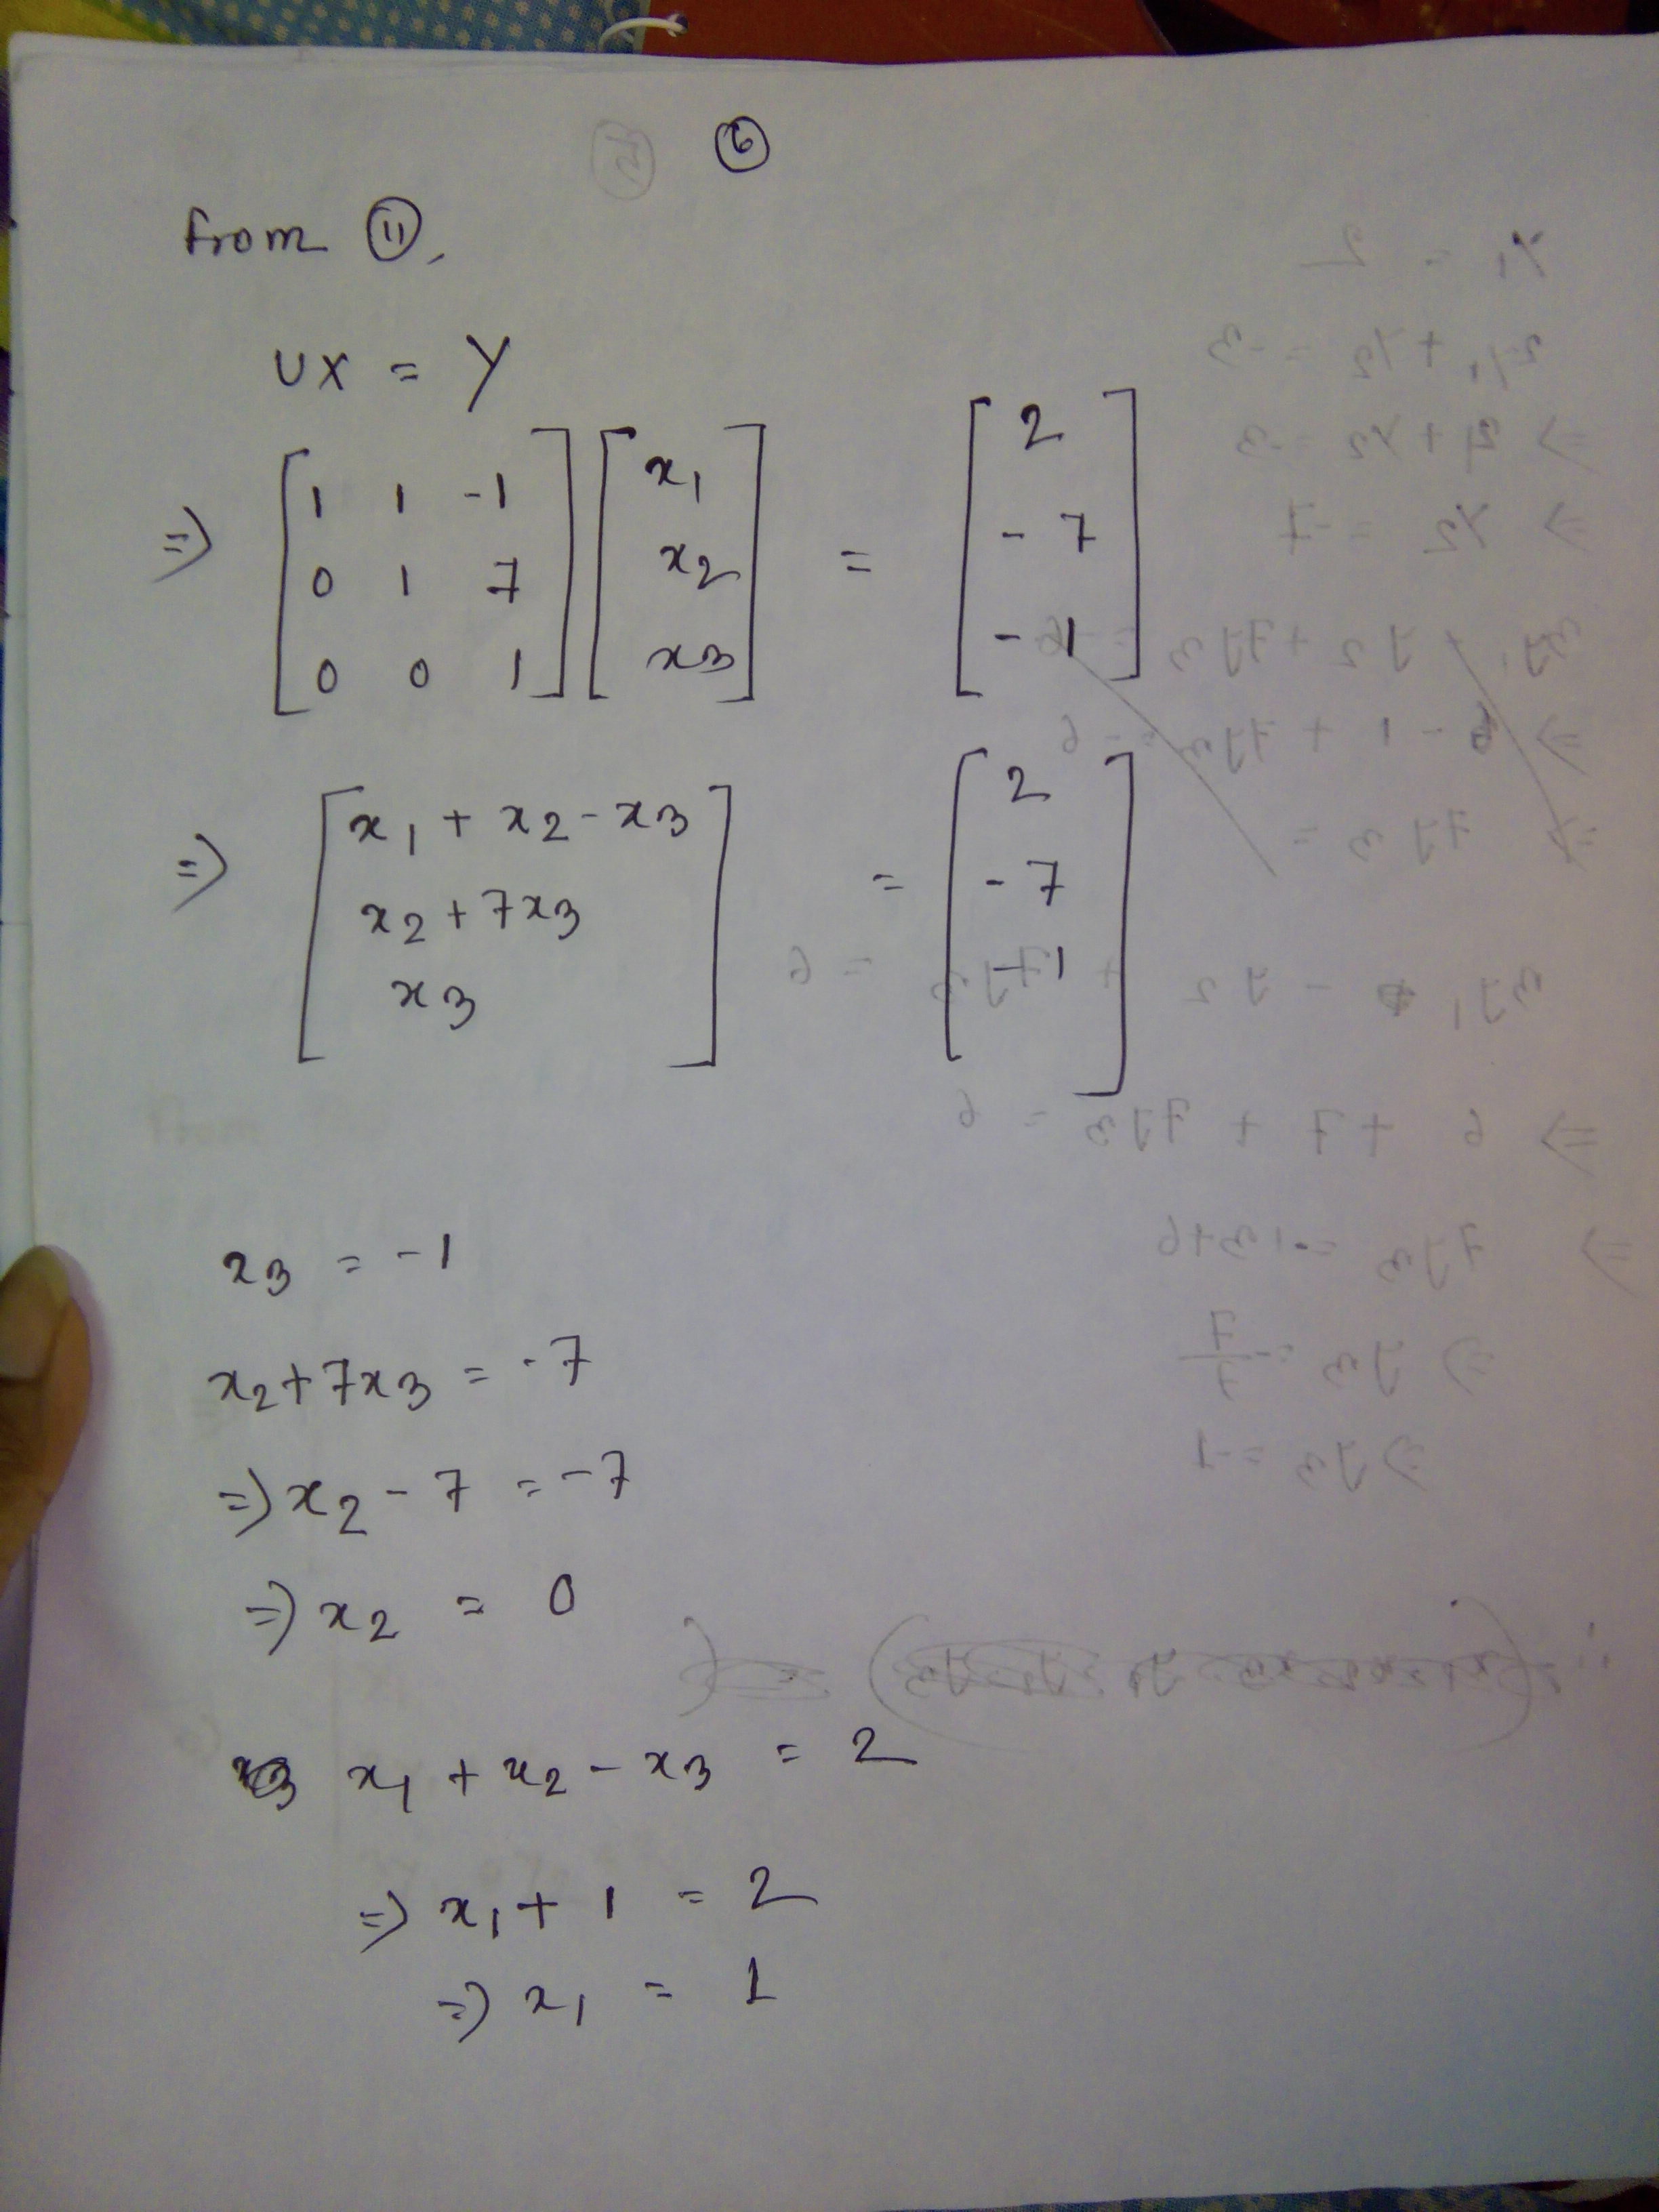 ⑥
From ⑪,
UX = Y
⇒ [1 1 -1; 0 1 7; 0 0 1] [x1; x2; x3] = [2; -7; -1]
⇒ [x1 + x2 - x3; x2 + 7x3; x3] = [2; -7; -1]
x3 = -1
x2 + 7x3 = -7
⇒ x2 - 7 = -7
⇒ x2 = 0
x1 + x2 - x3 = 2
⇒ x1 + 1 = 2
⇒ x1 = 1